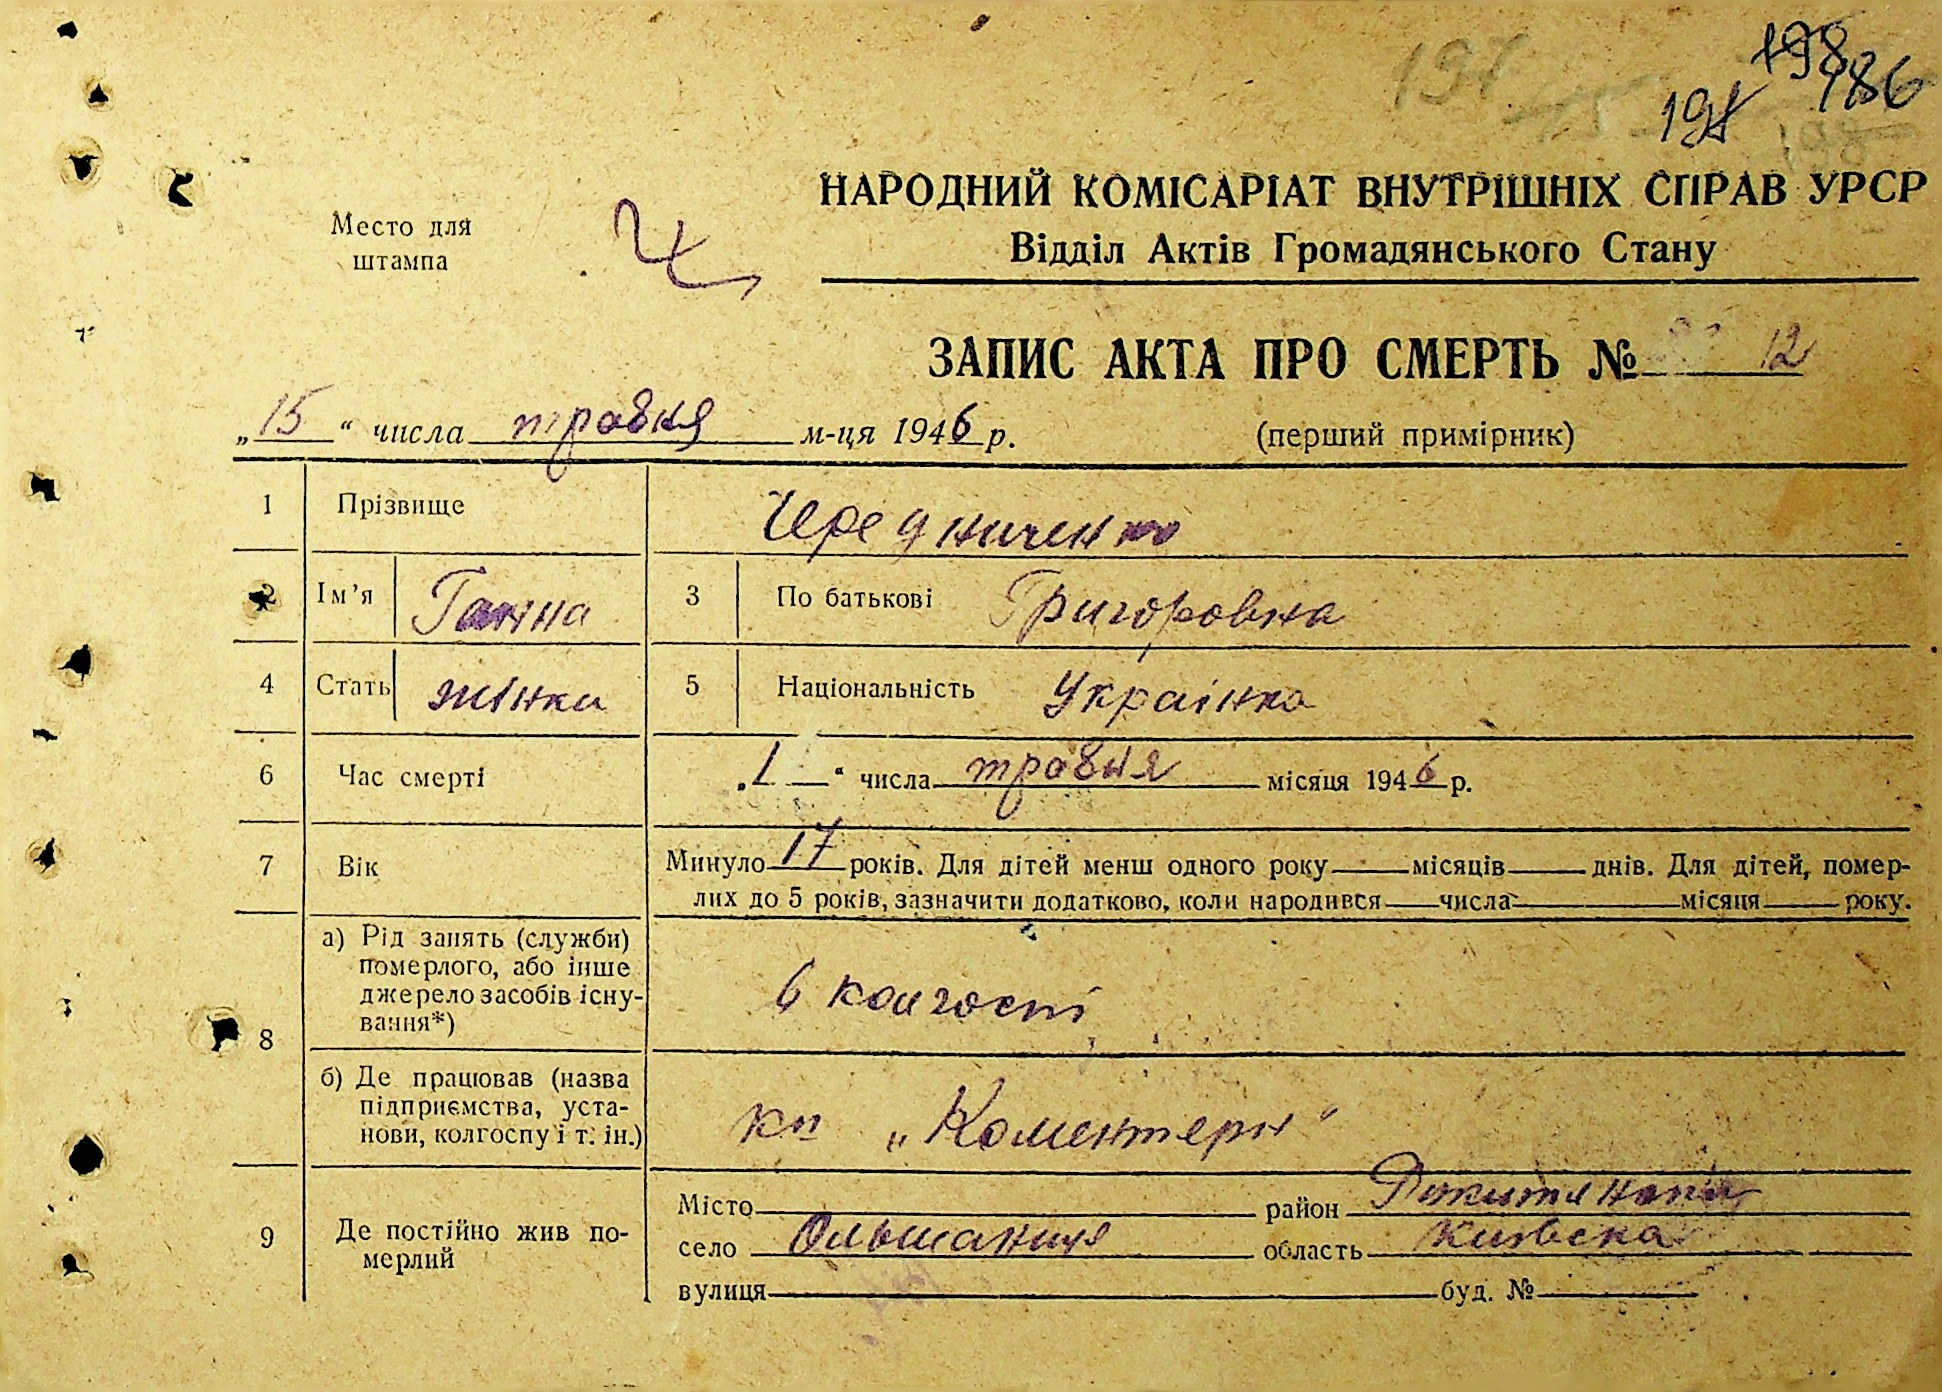 197
198
186
198
НАРОДНИЙ КОМІСАРІАТ ВНУТРІШНІХ СПРАВ УРСР
Место для
штампа
Відділ Актів Громадянського Стану
ЗАПИС АКТА ПРО СМЕРТЬ № 12
„15“ числа травня м-ця 1946 р.
(перший примірник)
1 Прізвище Чередниченко
2 Ім’я Ганна 3 По батькові Григоровна
4 Стать жінка 5 Національність Украінка
6 Час смерті „1“ числа травня місяця 1946 р.
7 Вік Минуло 17 років. Для дітей менш одного року місяців днів. Для дітей, помер-
лих до 5 років, зазначити додатково, коли народився числа місяця року.
8 а) Рід занять (служби)
померлого, або інше
джерело засобів існу-
вання*)
в колгоспі
б) Де працював (назва
підприємства, уста-
нови, колгоспу і т. ін.)
кп „Коментерн“
9 Де постійно жив по-
мерлий
Місто район
село Ольшаниця область Киівска
вулиця буд. №